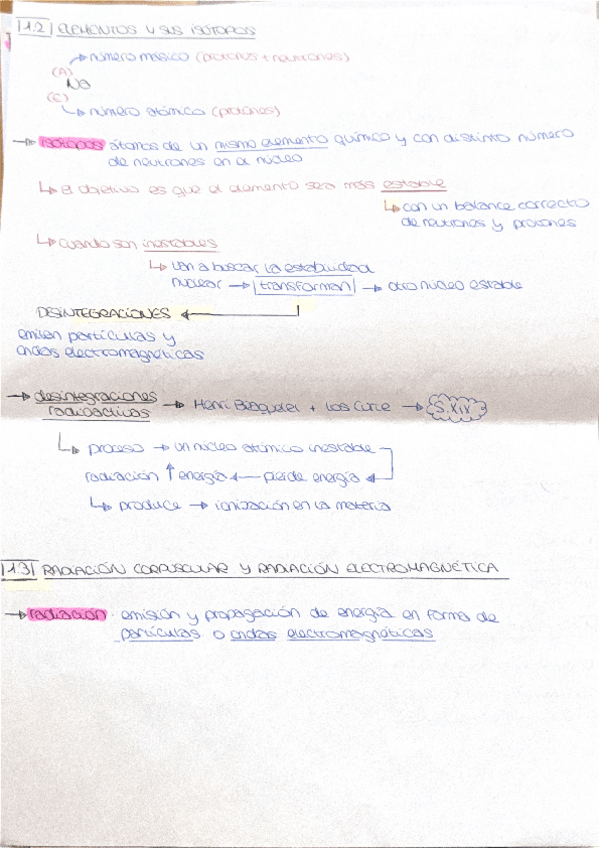 1.2 ELEMENTOS Y SUS ISÓTOPOS
número másico (protones + neutrones)
(A)
Na
(Z)
número atómico (protones)
isótopos átomos de un mismo elemento químico y con distinto número
de neutrones en el núcleo
El objetivo es que el elemento sea más estable
con un balance correcto
de neutrones y protones
Cuando son inestables
van a buscar la estabilidad
nuclear → transforman → otro núcleo estable
DESINTEGRACIONES
emiten partículas y
ondas electromagnéticas
→ desintegraciones
radioactivas → Henri Becquerel + los Curie → S.XIX
proceso → un núcleo atómico inestable
radiación ↑ energía ← pierde energía
produce → ionización en la materia
1.3 RADIACIÓN CORPUSCULAR Y RADIACIÓN ELECTROMAGNÉTICA
→ radiación: emisión y propagación de energía en forma de
partículas o ondas electromagnéticas